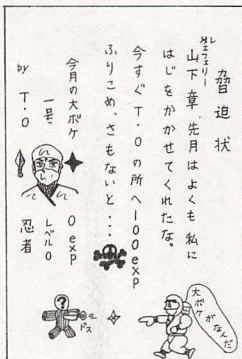 脅迫状
レフェリー
山下章、先月はよくも私に
はじをかかせてくれたな。
今すぐT.Oの所へ100exp
ふりこめ、さもないと・・・
今月の大ボケ 0exp
一号 レベル0
by T.O 忍者
大ボケがなんだ
?
ドス